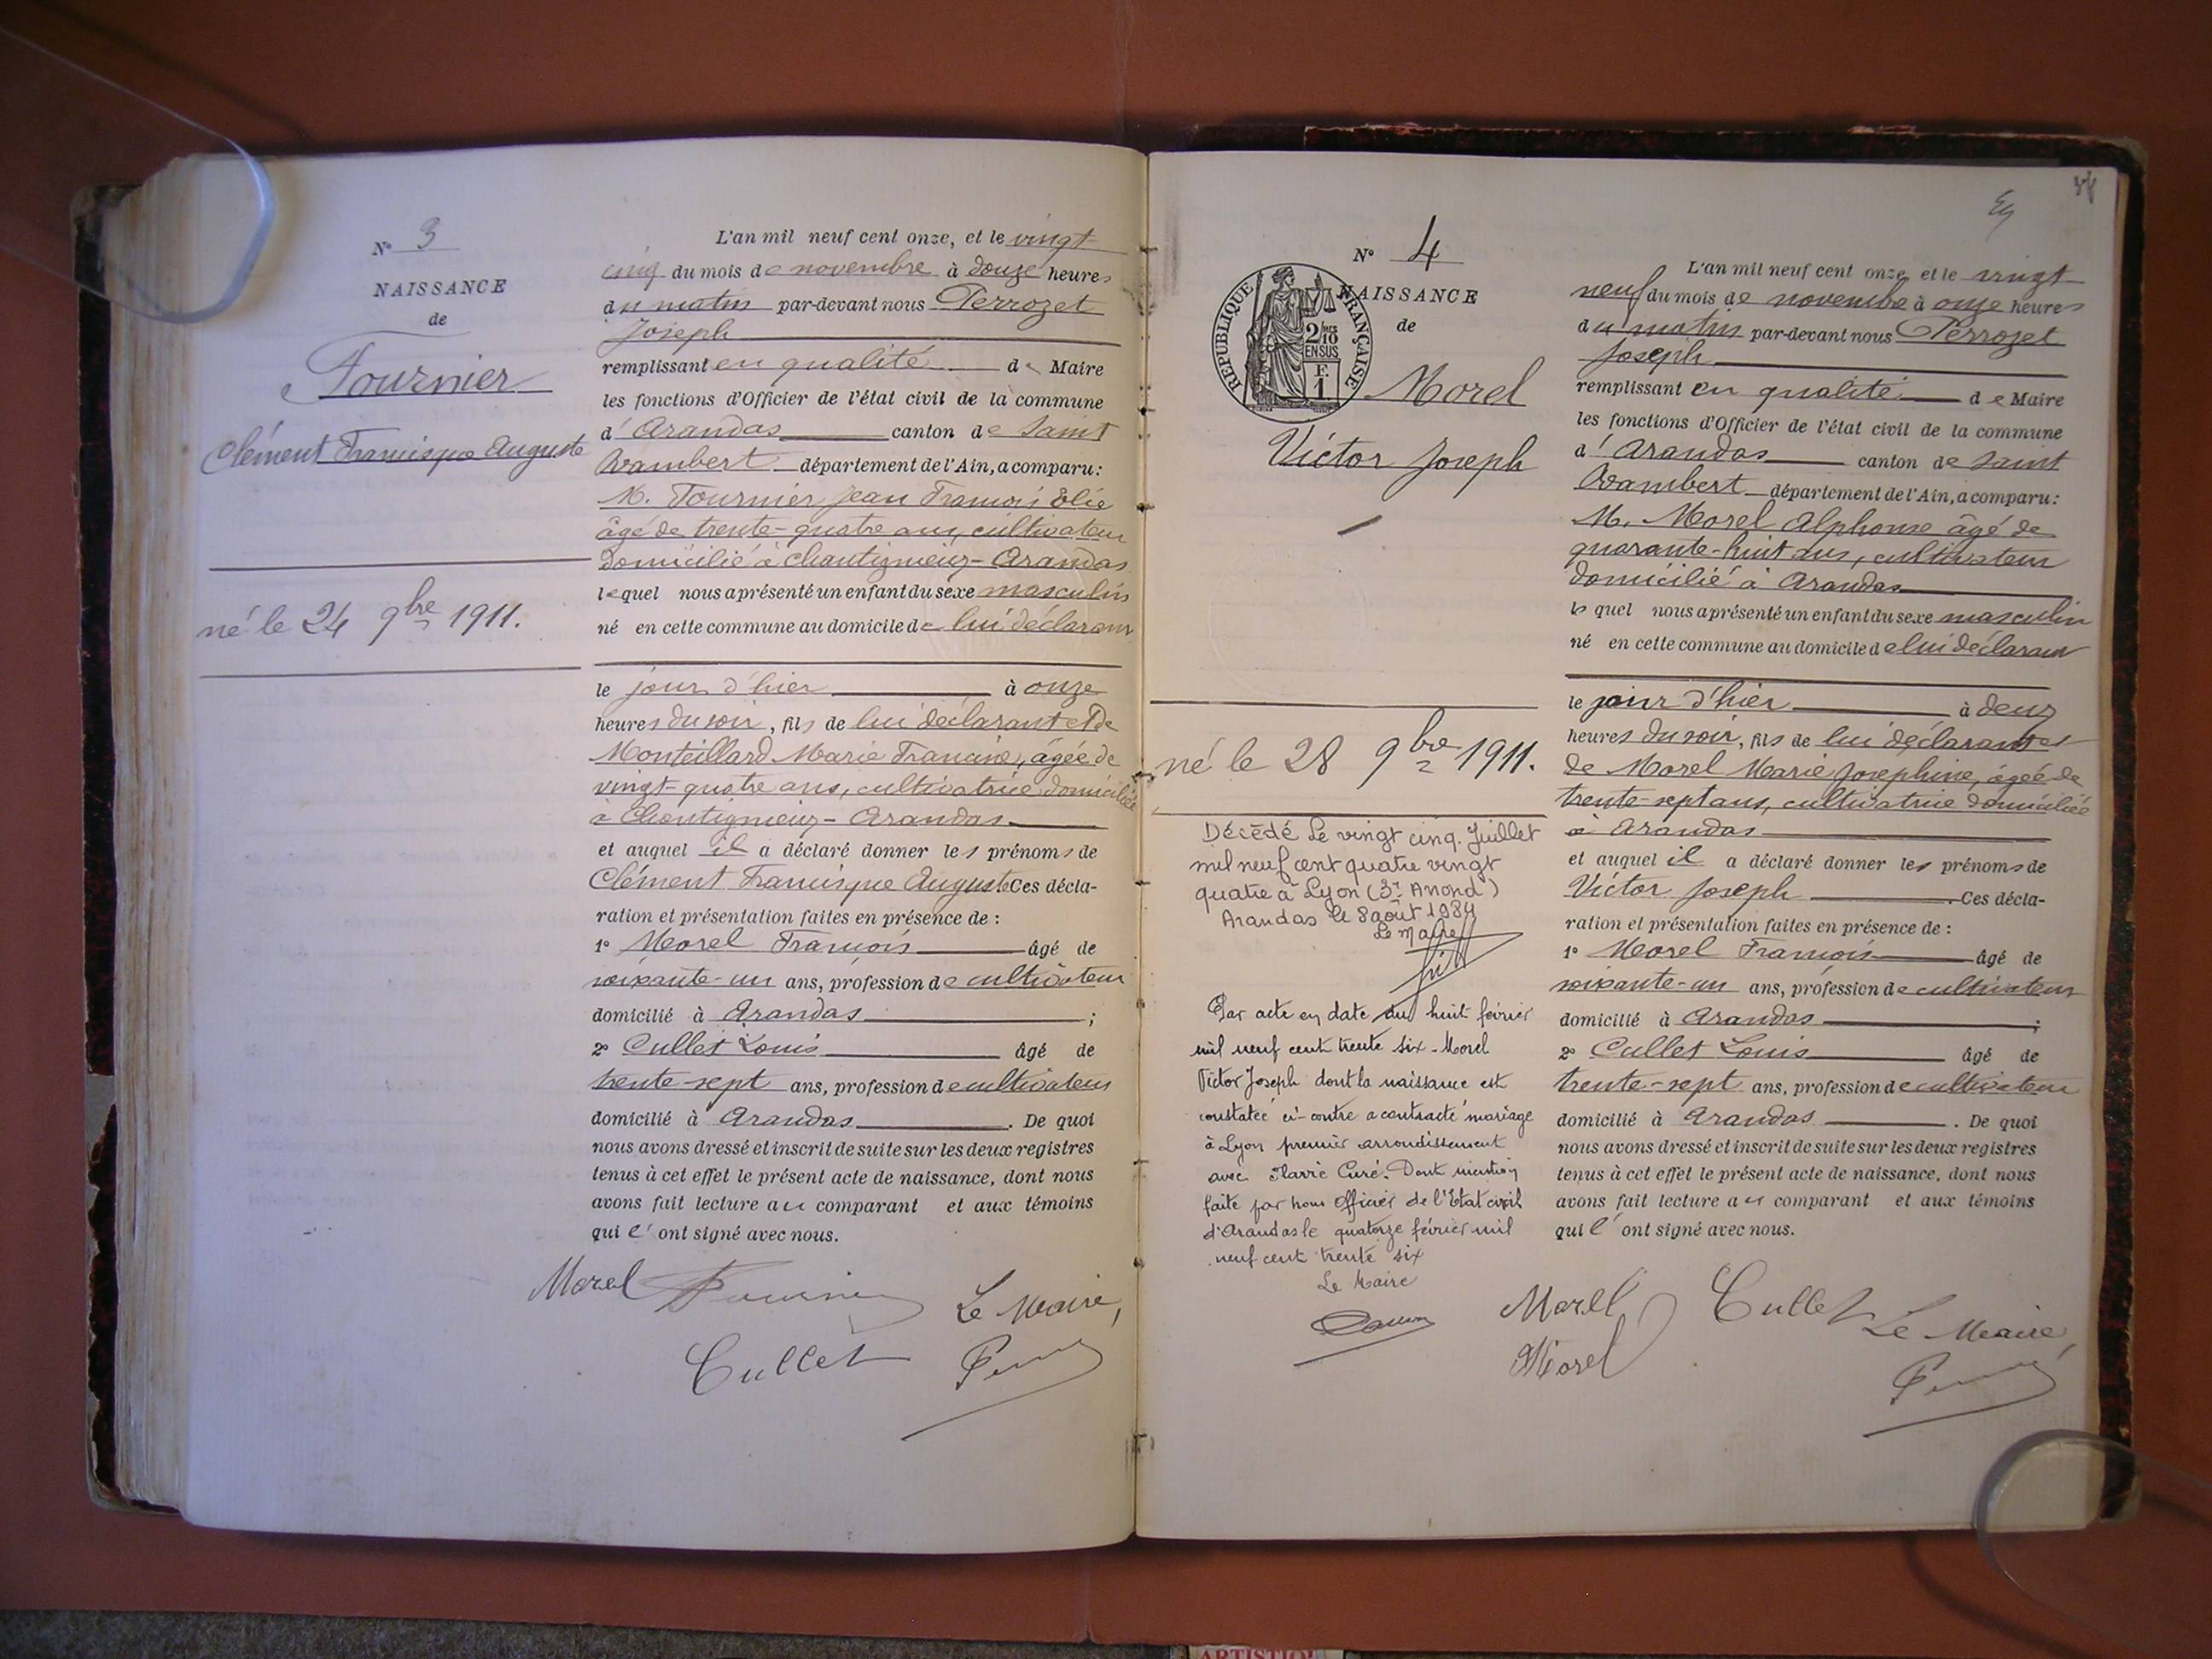 N° 3
NAISSANCE
de
Fournier
Clément Francisque Auguste
né le 24 9bre 1911.
L'an mil neuf cent onze, et le vingt
cinq du mois de novembre à douze heures
du matin par-devant nous Perrozet
Joseph
remplissant en qualité de Maire
les fonctions d'Officier de l'état civil de la commune
d'Arandas canton de Saint
Rambert département de l'Ain, a comparu:
M. Fournier Jean François Elie
âgé de trente-quatre ans, cultivateur
domicilié à Chantignieux-Arandas
lequel nous a présenté un enfant du sexe masculin
né en cette commune au domicile de lui déclarant
le jour d'hier à onze
heures du soir, fils de lui déclarant et de
Monteillard Marie Francine, âgée de
vingt-quatre ans, cultivatrice domiciliée
à Chantignieux-Arandas
et auquel il a déclaré donner les prénoms de
Clément Francisque Auguste Ces décla-
ration et présentation faites en présence de :
1° Morel François âgé de
soixante-un ans, profession de cultivateur
domicilié à Arandas ;
2° Cullet Louis âgé de
trente-sept ans, profession de cultivateur
domicilié à Arandas . De quoi
nous avons dressé et inscrit de suite sur les deux registres
tenus à cet effet le présent acte de naissance, dont nous
avons fait lecture au comparant et aux témoins
qui l'ont signé avec nous.
Morel Fournier Le Maire,
Cullet
N° 4
NAISSANCE
de
RÉPUBLIQUE FRANÇAISE
2/10
EN SUS
F.
1
Morel
Victor Joseph
né le 28 9bre 1911.
Décédé Le vingt cinq Juillet
mil neuf cent quatre vingt
quatre à Lyon (3e Arrond)
Arandas le 8 août 1984
Le Maire
Par acte en date du huit février
mil neuf cent trente six. Morel
Victor Joseph dont la naissance est
constatée ci-contre a contracté mariage
à Lyon premier arrondissement
avec Curé. Dont mention
faite par nous Officier de l'Etat civil
d'Arandas le quatorze février mil
neuf cent trente six
Le Maire
L'an mil neuf cent onze et le vingt
neuf du mois de novembre à onze heures
du matin par-devant nous Perrozet
Joseph
remplissant en qualité de Maire
les fonctions d'Officier de l'état civil de la commune
d'Arandas canton de Saint
Rambert département de l'Ain, a comparu:
M. Morel Alphonse âgé de
quarante-huit ans, cultivateur
domicilié à Arandas
lequel nous a présenté un enfant du sexe masculin
né en cette commune au domicile de lui déclarant
le jour d'hier à deux
heures du soir, fils de lui déclarant et
de Morel Marie Josephine, âgée de
trente-sept ans, cultivatrice domiciliée
à Arandas
et auquel il a déclaré donner les prénoms de
Victor Joseph . Ces décla-
ration et présentation faites en présence de :
1° Morel François âgé de
soixante-un ans, profession de cultivateur
domicilié à Arandas ;
2° Cullet Louis âgé de
trente-sept ans, profession de cultivateur
domicilié à Arandas . De quoi
nous avons dressé et inscrit de suite sur les deux registres
tenus à cet effet le présent acte de naissance, dont nous
avons fait lecture au comparant et aux témoins
qui l'ont signé avec nous.
Morel Cullet Le Maire,
Morel